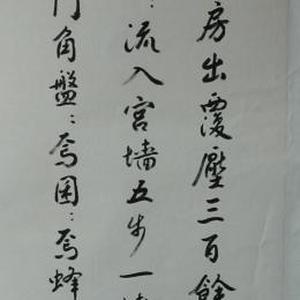 房出覆壓三百餘
：流入宮墻五步一
角盤：焉囷：焉蜂